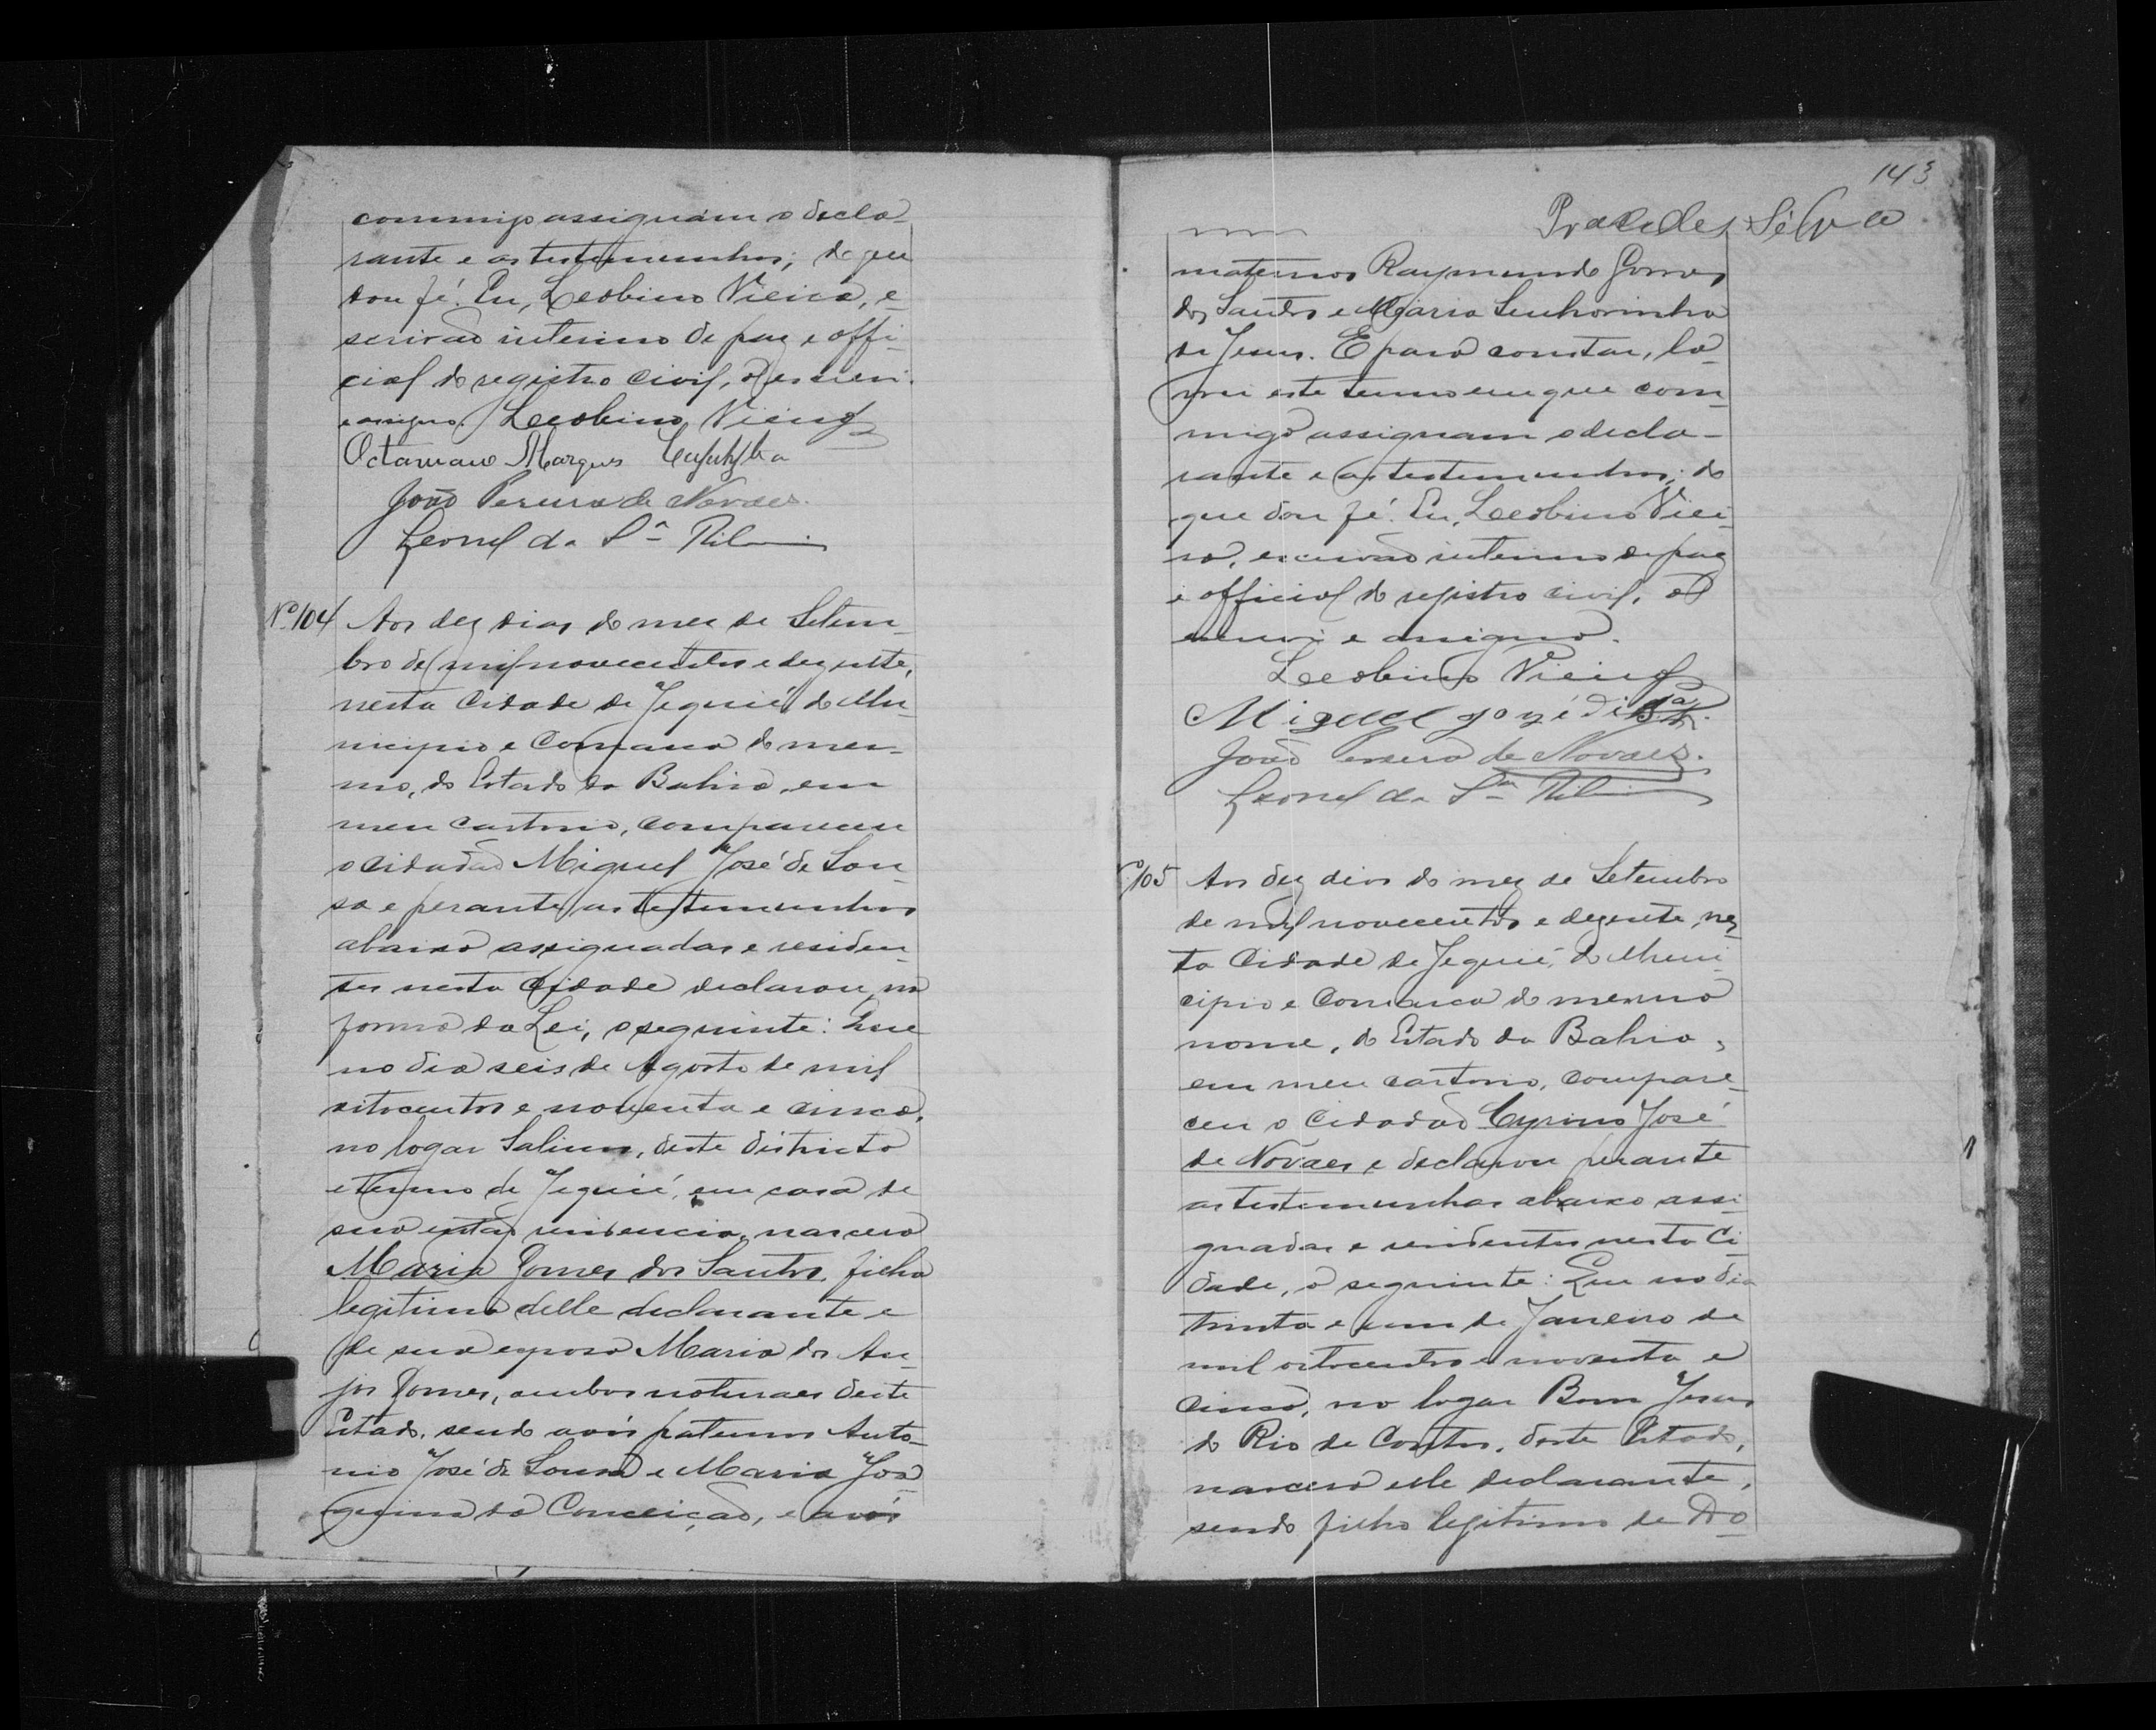 commigo assignam o decla-
rante e as testemunhas; do que
dou fé. Eu, Leobino Vieira, e-
scrivão interino de paz e offi-
cial do registro civil, o escrevi
e assigno. Leobino Vieira
Octaviano Marques
João Pereira de Novaes.
Leonel da Sª Ribeiro
Nº 104 Aos dez dias do mez de Setem-
bro de mil novecentos e dezesete,
nesta Cidade de Jequié do Mu-
nicipio e Comarca do mes-
mo, do Estado da Bahia, em
meu cartorio, compareceu
o cidadão Miguel José de Sou-
sa e perante as testemunhas
abaixo assignadas e residen-
tes nesta Cidade declarou, na
forma da Lei, o seguinte: Que
no dia seis de Agosto de mil
oitocentos e noventa e cinco,
no logar Salinas, deste districto
e termo de Jequié, em casa de
sua então residencia, nasceu
Maria Gomes dos Santos, filha
legitima delle declarante e
de sua esposa Maria dos An-
jos Gomes, ambos naturaes deste
Estado, sendo avós paternos Anto-
nio José de Sousa e Maria Joa-
quina da Conceição, e avós
143
Praxedes Silva
maternos Raymundo Gomes
dos Santos e Maria Senhorinha
de Jesus. E para constar, la-
vrei este termo em que com-
migo assignam o decla-
rante e as testemunhas; do
que dou fé. Eu, Leobino Viei-
ra, escrivão interino de paz
e official do registro civil, o
escrevi e assigno.
Leobino Vieira
Miguel José di
João Pereira de Novaes.
Leonel da Sª Ribeiro
Nº 105 Aos dez dias do mez de Setembro
de mil novecentos e dezesete, nes-
ta Cidade de Jequié, do Muni-
cipio e Comarca do mesmo
nome, do Estado da Bahia,
em meu cartorio, compare-
ceu o cidadão Cyrino José
de Novaes e declarou perante
as testemunhas abaixo assi-
gnadas e residentes nesta Ci-
dade, o seguinte: Que no dia
trinta e um de Janeiro de
mil oitocentos e noventa e
cinco, no logar Bom Jesus
do Rio de Contas, deste Estado,
nasceu elle declarante,
sendo filho legitimo de Do-